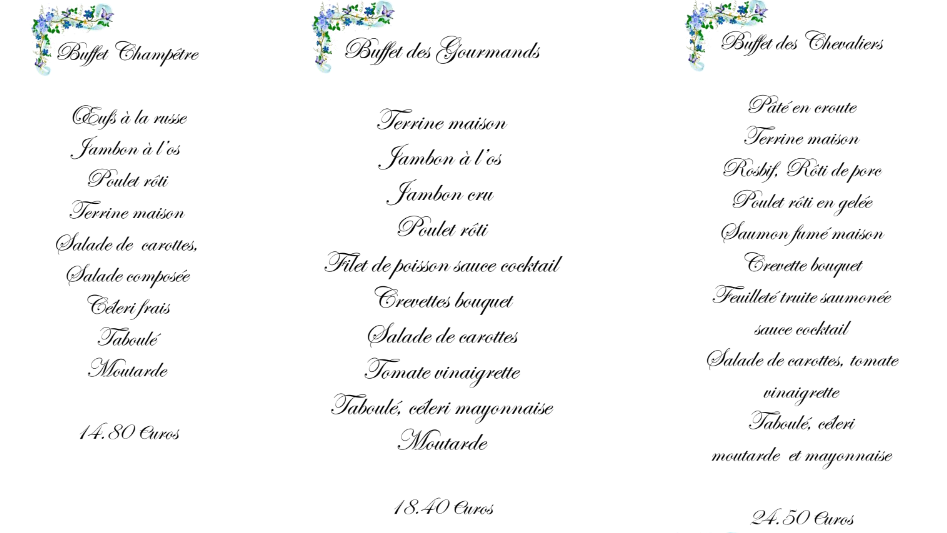 Buffet Champêtre
Œufs à la russe
Jambon à l'os
Poulet rôti
Terrine maison
Salade de carottes,
Salade composée
Céleri frais
Taboulé
Moutarde
14.80 Euros
Buffet des Gourmands
Terrine maison
Jambon à l'os
Jambon cru
Poulet rôti
Filet de poisson sauce cocktail
Crevettes bouquet
Salade de carottes
Tomate vinaigrette
Taboulé, céleri mayonnaise
Moutarde
18.40 Euros
Buffet des Chevaliers
Pâté en croute
Terrine maison
Rosbif, Rôti de porc
Poulet rôti en gelée
Saumon fumé maison
Crevette bouquet
Feuilleté truite saumonée
sauce cocktail
Salade de carottes, tomate
vinaigrette
Taboulé, céleri
moutarde et mayonnaise
24.50 Euros